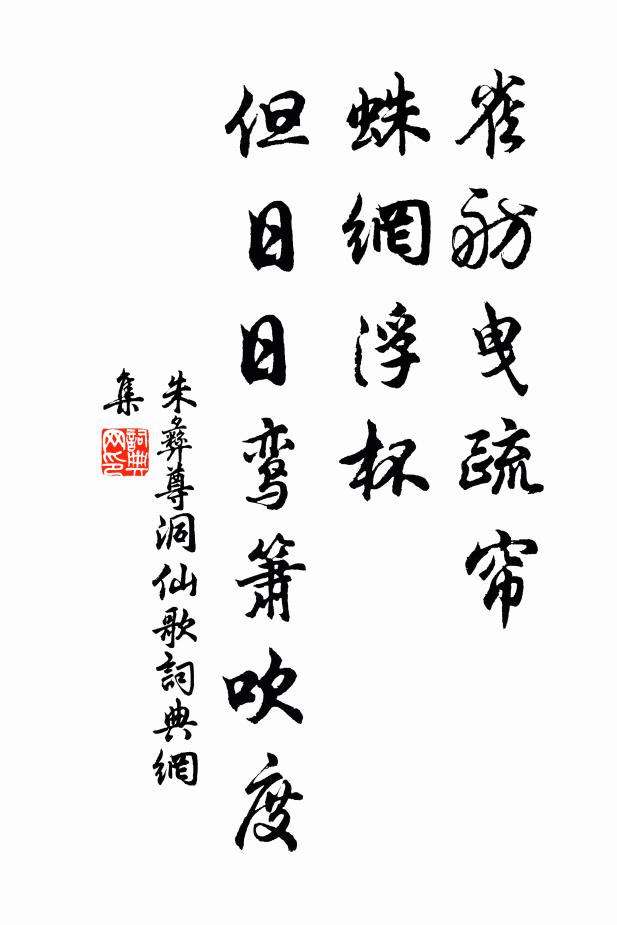 雀舫曳疏帘
蛛網浮杯
但日日鸾簫吹度
朱彝尊洞仙歌詞典網
集
詞典
网印